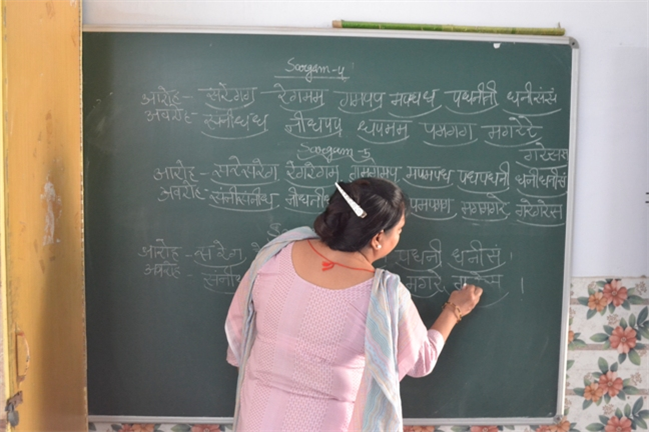 Sargam-4
आरोह- सरेगग रेगमम गमपप मपधध पधनीनी धनीसंसं
अवरोह- संनीधध नीधपप धपमम पमगग मगरेरे
गरेसस
Sargam-5
आरोह- सरेसरेग रेगरेगम गमगमप मपमपध पधपधनी धनीधनीसं
अवरोह- संनीसंनीध पमपमग मगमगरे गरेगरेस
आरोह- सरेग, पधनी धनीसं।
अवरोह- मगरे, गरेस ।